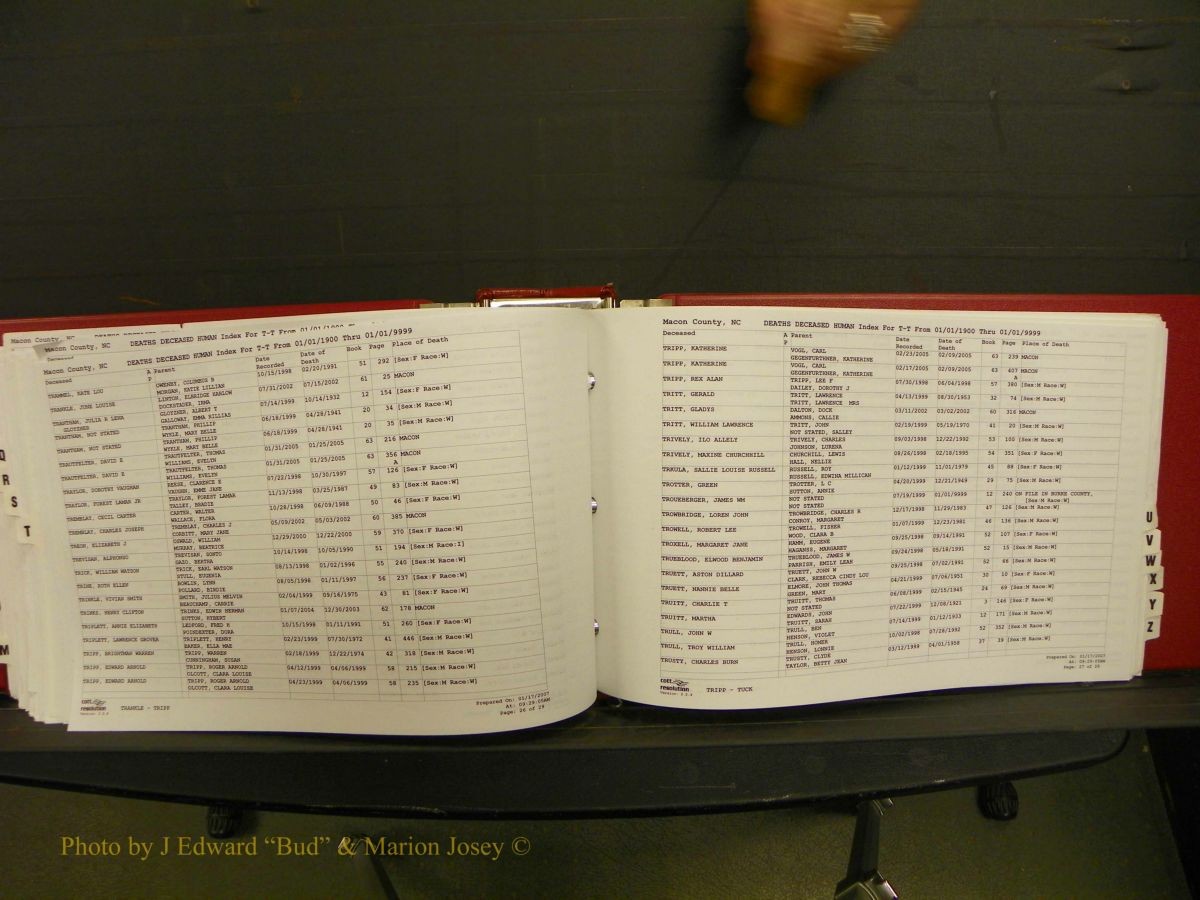 Macon County, NC DEATHS DECEASED HUMAN Index For T-T From 01/01/1900 Thru 01/01/9999
Deceased A Parent Date Recorded Date of Death Book Page Place of Death
P
TRAMMEL, KATE LOU OWENBY, COLUMBUS B 10/15/1998 02/20/1991 51 292 [Sex:F Race:W]
MORGAN, KATIE LILLIAN
TRANKLE, JUNE LOUISE LINTON, ELBRIDGE HARLOW 07/31/2002 07/15/2002 61 25 MACON
DOCKSTADER, IRMA
TRANTHAM, JULIA R LENA GLOYZNER, ALBERT T 07/14/1999 10/14/1932 12 154 [Sex:F Race:W]
GLOYZNER GALLOWAY, EMMA RILLIAS
TRANTHAM, NOT STATED TRANTHAM, PHILLIP 06/18/1999 04/28/1941 20 34 [Sex:M Race:W]
WYKLE, MARY BELLE
TRANTHAM, NOT STATED TRANTHAM, PHILLIP 06/18/1999 04/28/1941 20 35 [Sex:M Race:W]
WYKLE, MARY BELLE
TRAUTFELTER, DAVID E TRAUTFELTER, THOMAS 01/31/2005 01/25/2005 63 216 MACON
WILLIAMS, EVELYN
TRAUTFELTER, DAVID E TRAUTFELTER, THOMAS 01/31/2005 01/25/2005 63 356 MACON
WILLIAMS, EVELYN A
TRAYLOR, DOROTHY VAUGHAN REESE, CLARENCE E 07/22/1998 10/30/1997 57 126 [Sex:F Race:W]
VAUGHN, EMME JANE
TRAYLOR, FOREST LAMAR JR TRAYLOR, FOREST LAMAR 11/13/1998 03/25/1987 49 83 [Sex:M Race:W]
TALLEY, BRADIE
TREMBLAY, CECIL CARTER CARTER, WALTER 10/28/1998 06/09/1988 50 46 [Sex:F Race:W]
WALLACE, FLORA
TREMBLAY, CHARLES JOSEPH TREMBLAY, CHARLES J 05/09/2002 05/03/2002 60 385 MACON
CORBITT, MARY JANE
TREON, ELIZABETH J OSWALD, WILLIAM 12/29/2000 12/22/2000 59 370 [Sex:F Race:W]
MURRAY, BEATRICE
TREVISAN, ALFONSO TREVISAN, SANTO 10/14/1998 10/05/1990 51 194 [Sex:M Race:I]
GAZO, BERTHA
TRICK, WILLIAM WATSON TRICK, EARL WATSON 08/13/1996 01/02/1996 55 240 [Sex:M Race:W]
STULL, EUGENIA
TRINE, RUTH ELLEN BOWLIN, LYNN 08/05/1996 01/11/1997 56 237 [Sex:F Race:W]
POLLARD, BINDIE
TRINKLE, VIVIAN SMITH SMITH, JULIUS MELVIN 02/04/1999 09/16/1975 43 81 [Sex:F Race:W]
BEAUCHAMP, CARRIE
TRINKS, HENRY CLIFTON TRINKS, EDWIN HERMAN 01/07/2004 12/30/2003 62 178 MACON
SUTTON, RYBERT
TRIPLETT, ANNIE ELIZABETH LEDFORD, FRED H 10/15/1998 01/11/1991 51 260 [Sex:F Race:W]
POINDEXTER, DORA
TRIPLETT, LAWRENCE GROVEA TRIPLETT, HENRY 02/23/1999 07/30/1972 41 446 [Sex:M Race:W]
BAKER, ELLA MAE
TRIPP, BRIGHTMAN WARREN TRIPP, WARREN 02/18/1999 12/22/1974 42 318 [Sex:M Race:W]
CUNNINGHAM, SUSAN
TRIPP, EDWARD ARNOLD TRIPP, ROGER ARNOLD 04/12/1999 04/06/1999 58 215 [Sex:M Race:W]
OLCOTT, CLARA LOUISE
TRIPP, EDWARD ARNOLD TRIPP, ROGER ARNOLD 04/23/1999 04/06/1999 58 235 [Sex:M Race:W]
OLCOTT, CLARA LOUISE
cott resolution TRANKLE - TRIPP
Prepared On: 01/17/2007
At: 09:29:05AM
Page: 26 of 29
Macon County, NC DEATHS DECEASED HUMAN Index For T-T From 01/01/1900 Thru 01/01/9999
Deceased A Parent Date Recorded Date of Death Book Page Place of Death
P
TRIPP, KATHERINE VOGL, CARL 02/23/2005 02/09/2005 63 239 MACON
GEGENFURTHNER, KATHERINE
TRIPP, KATHERINE VOGL, CARL 02/17/2005 02/09/2005 63 407 MACON
GEGENFURTHNER, KATHERINE A
TRIPP, REX ALAN TRIPP, LEE F 07/30/1998 06/04/1998 57 380 [Sex:M Race:W]
DAILEY, DOROTHY J
TRITT, GERALD TRITT, LAWRENCE 04/13/1999 08/30/1953 32 74 [Sex:M Race:W]
TRITT, LAWRENCE MRS
TRITT, GLADYS DALTON, DOCK 03/11/2002 03/02/2002 60 316 MACON
AMMONS, CALLIE
TRITT, WILLIAM LAWRENCE TRITT, JOHN 02/19/1999 05/19/1970 41 20 [Sex:M Race:W]
NOT STATED, SALLEY
TRIVELY, ILO ALLELY TRIVELY, CHARLES 09/03/1998 12/22/1992 53 100 [Sex:M Race:W]
JOHNSON, LURENA
TRIVELY, MAXINE CHURCHILL CHURCHILL, LEWIS 08/26/1998 02/18/1995 54 351 [Sex:F Race:W]
HALL, NELLIE
TRKULA, SALLIE LOUISE RUSSELL RUSSELL, ROY 01/12/1999 11/01/1979 45 88 [Sex:F Race:W]
RUSSELL, EDWINA MILLICAN
TROTTER, GREEN TROTTER, L C 04/20/1999 12/21/1949 29 75 [Sex:M Race:W]
SUTTON, ANNIE
TROUEBERGER, JAMES WM NOT STATED 07/19/1999 01/01/9999 12 240 ON FILE IN BURKE COUNTY,
NOT STATED [Sex:M Race:W]
TROWBRIDGE, LOREN JOHN TROWBRIDGE, CHARLES R 12/17/1998 11/29/1983 47 126 [Sex:M Race:W]
CONROY, MARGARET
TROWELL, ROBERT LEE TROWELL, FISHER 01/07/1999 12/23/1981 46 136 [Sex:M Race:W]
WOOD, CLARA B
TROXELL, MARGARET JANE HAMM, EUGENE 09/25/1998 09/14/1991 52 107 [Sex:F Race:W]
HAGANSE, MARGARET
TRUEBLOOD, ELWOOD BENJAMIN TRUEBLOOD, JAMES W 09/24/1998 05/18/1991 52 15 [Sex:M Race:W]
PARRISH, EMILY LEAH
TRUETT, ASTON DILLARD TRUETT, JOHN W 09/25/1998 07/02/1991 52 66 [Sex:M Race:W]
CLARK, REBECCA CINDY LOU
TRUETT, NANNIE BELLE ELMORE, JOHN THOMAS 04/21/1999 07/06/1951 30 10 [Sex:F Race:W]
GREEN, MARY
TRUITT, CHARLIE T TRUITT, THOMAS 06/08/1999 02/15/1945 24 69 [Sex:M Race:W]
NOT STATED
TRUITT, MARTHA EDWARDS, JOHN 07/22/1999 12/08/1921 3 146 [Sex:F Race:W]
TRUITT, SARAH
TRULL, JOHN W TRULL, BEN 07/14/1999 01/12/1933 12 171 [Sex:M Race:W]
HENSON, VIOLET
TRULL, TROY WILLIAM TRULL, HOMER 10/02/1998 07/28/1992 52 352 [Sex:M Race:W]
BENSON, LONNIE
TRUSTY, CHARLES BURN TRUSTY, CLYDE 03/12/1999 04/01/1958 37 39 [Sex:M Race:W]
TAYLOR, BETTY JEAN
cott resolution TRIPP - TUCK
Prepared On: 01/17/2007
At: 09:29:05AM
Page: 27 of 29
Q
R
S
T
M
U
V
W
X
Y
Z
Photo by J Edward “Bud” & Marion Josey ©